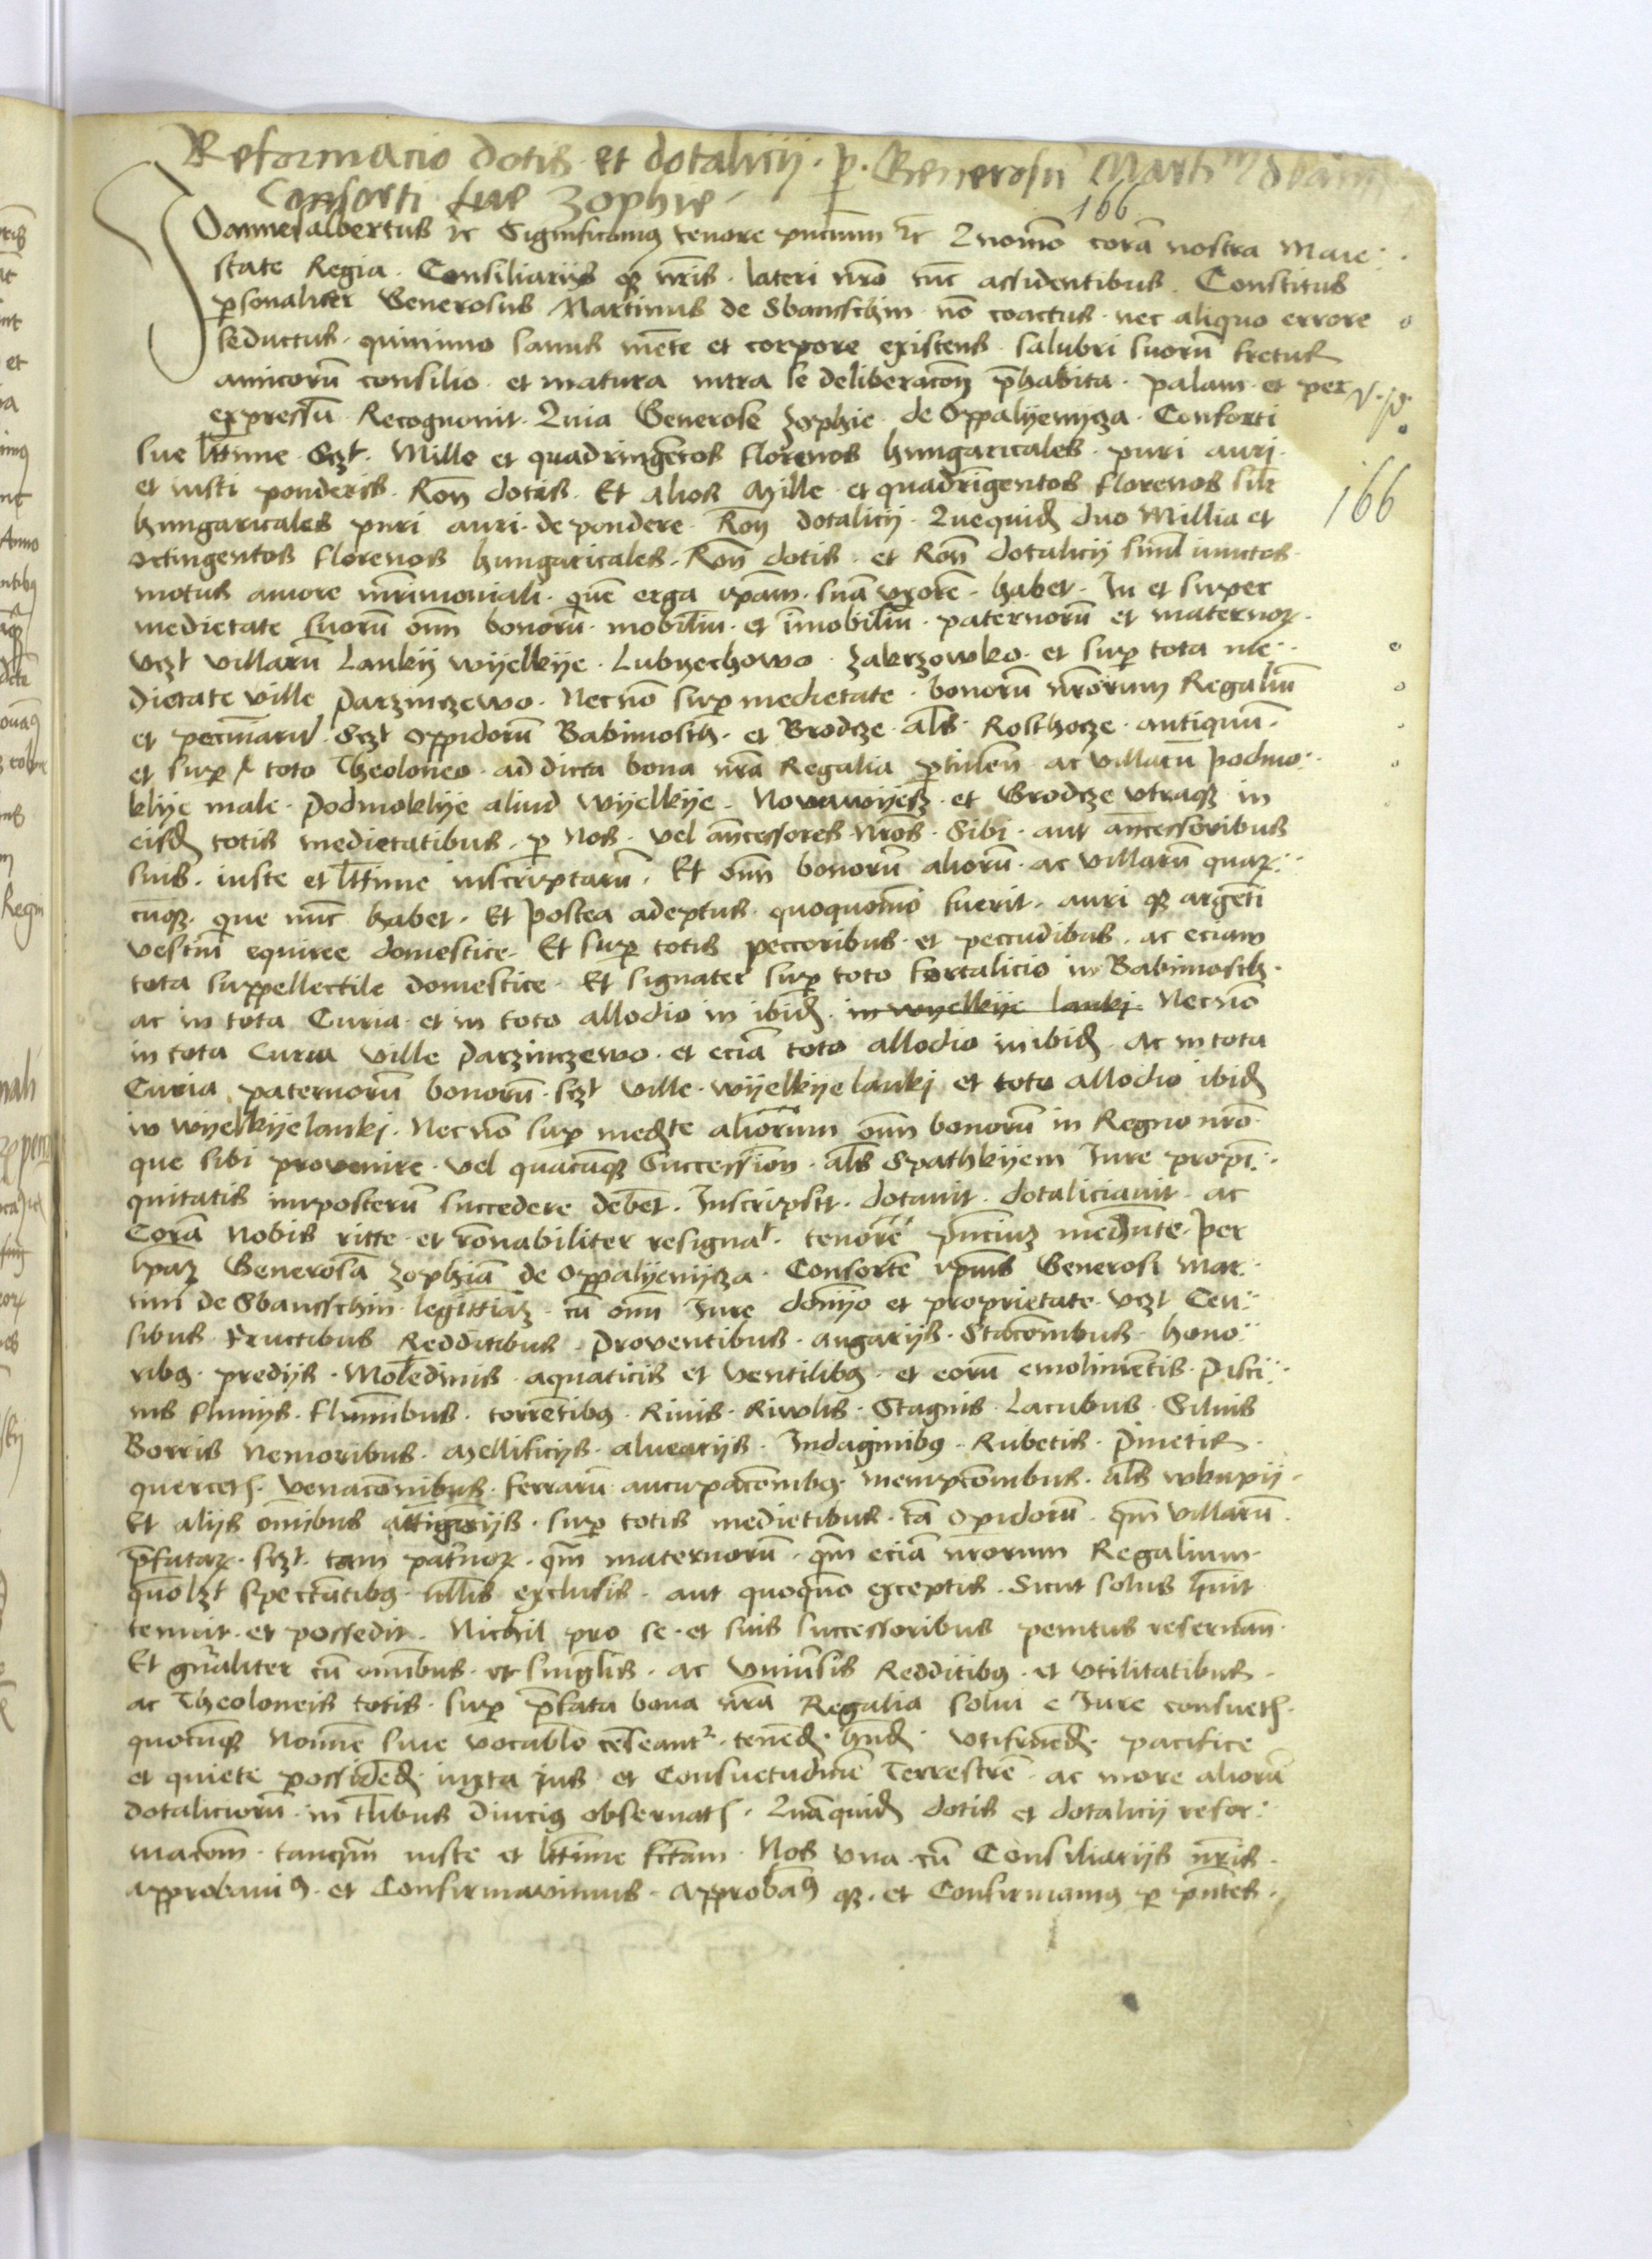 Reformacio dotis et dotalicij p Generosū Marti
Consorti sue Zophie
166
Joannes albertus ꝛc Significamꝰ tenore pncium ꝛc Quomo corā nostra Maie
state Regia Consiliarijs qꝫ nrīs lateri nrō tūc assidentibus Constitus
psonaliter Generosus Martinus de Sbansschin nō coactus nec aliquo errore
seductus quinimo sanus mēte et corpore existens salubri suorū fretus
amicorū consilio et matura intra se deliberacōn p̄habita palam et per
expressū Recognouit Quia Generose Zophie de Oppalyenycza Consorti
sue lttime Sczt Mille et quadringētos florenos hungaricales puri auri
et iusti ponderis Rōn dotis Et alios Mille et quadringentos florenos silr
hungaricales puri auri de pondere Rōn dotalicij Quequid duo Millia et
octingentos florenos hungaricales Rōn dotis et Rōn dotalicij simul iunctos
motus amore mrīmoniali quē erga ipam suā vxorē habet In et super
medietate suorū om̄n bonorū mobiliū et īmobiliū paternorū et maternoꝝ
vczt villarū Lankij wyelkije Lubyechowo Zakrzowko et sup tota me
dietate ville Parzinczewo Necnō sup medietate bonorū nrōrum Regaliū
et pecūiarū Sczt Oppidorū Babimosth et Brodcze als Rosthocze antiquū
et sup toto Theoloneo ad dicta bona nrā Regalia ptinen ac villarū Podmo
klije male Podmoklije aliud wyelkije Nowawyesz et Grodcze vtraqꝫ in
eisd totis medietatibus p Nos vel ancessores nrōs Sibi aut ancessoribus
suis iuste et lttime inscriptarū Et om̄n bonorū aliorū ac villarū quaꝝ
cūqꝫ que nūc habet Et postea adeptus quoquomō fuerit auri qꝫ argēti
vestiū equiree domestice Et sup totis peccoribus et peccudibus ac eciam
tota suppellectile domestice Et signater sup toto fortalicio in Babimosth
ac in tota Curia et in toto allodio in ibid in wyelkije lankj Necnō
in tota Curia ville Parzinczewo et eciā toto allodio inibid Ac in tota
Curia paternorū bonorū sczt ville wyelkije lankj et toto allodio ibid
in wyelkijelankj Necnō sup medte aliorum om̄n bonorū in Regno nrō
que sibi provenire vel quacūqꝫ Succession als Spathkyem Iure propī
quitatis inposterū succedere debet Inscripsit dotauit dotaliciauit ac
Corā Nobis ritte et rōnabiliter resignat tenorē pnciuꝫ medinte Per
Generosā Zophiā de Oppalyenycza Consortē ipius Generosi Mar
tini de Sbansschin cū om̄i Iure domijo et proprietate vczt Cen
sibus Fructibus Redditibus Proventibus angarijs Stacōnibus hono
ribꝰ predijs Moledinis aquaticis et ventilibꝰ et eorū emolimētis Pisci
nis fluuijs fluminibus torrētibꝰ Riuis Riwlis Stagnis Lacubus Siluis
Borris Nemoribus Mellificijs aluearijs Indaginibꝰ Rubetis Pinetis
quercetꝭ venacōnibus ferrarū aucupacōnibꝰ inempcōnibus als wkupij
Et alijs om̄ibus attigērijs sup totis medietibus tā Opidorū qm̄ villarū
p̄fataꝝ sczt tam patnoꝝ qm̄ maternorū qm̄ eciā nrorum Regalium
quolzt spectātibꝰ ullis exclusis aut quoquō exceptis Sicut solus hūit
tenuit et possedit Nichil pro se et suis successoribus penitus reseruan
Et gnāliter cū omībus et singlis ac Vniūsis Redditibꝰ et vtilitatibus
ac Theoloneis totis sup p̄fata bona nrā Regalia solui e Iure consuetꝭ
quocūqꝫ Nomīe siue vocablo cēseantʳ tenēd hnd vtifruēd pacifice
et quiete possidēd iuxta Jus et Consuetudinē Terrestrē ac more aliorū
dotaliciorū in tlibus diucius obseruatꝭ Quāquid dotis et dotalicij refor
macōm tanqm̄ iuste et lttime fctam Nos vna cū Consiliarijs nrīs
approbauiꝰ et Confirmauimus Approbāꝰ qꝫ et Confirmamꝰ p pntes
166